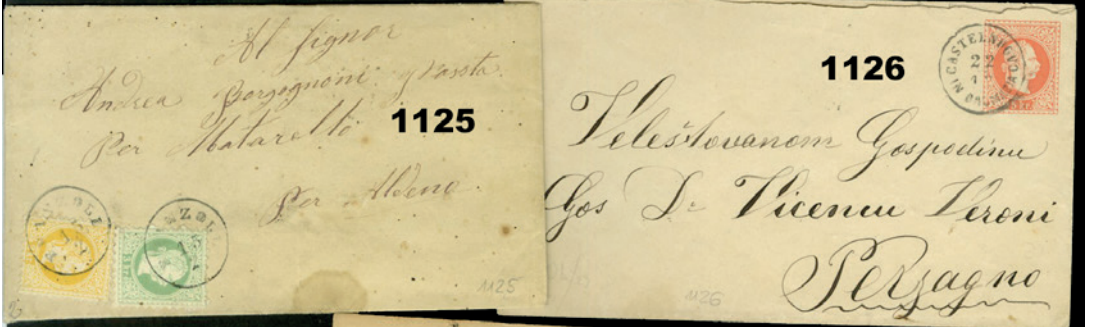 Al Signor
Andrea Borgognoni
Per Matarello
Per Aldeno.
1125
1125
1126
CASTELNUOVO IN DALMAZIA
22
Veleštovanom Gospodinu
Gos Dr Vicencu Veroni
Perzagno
1126